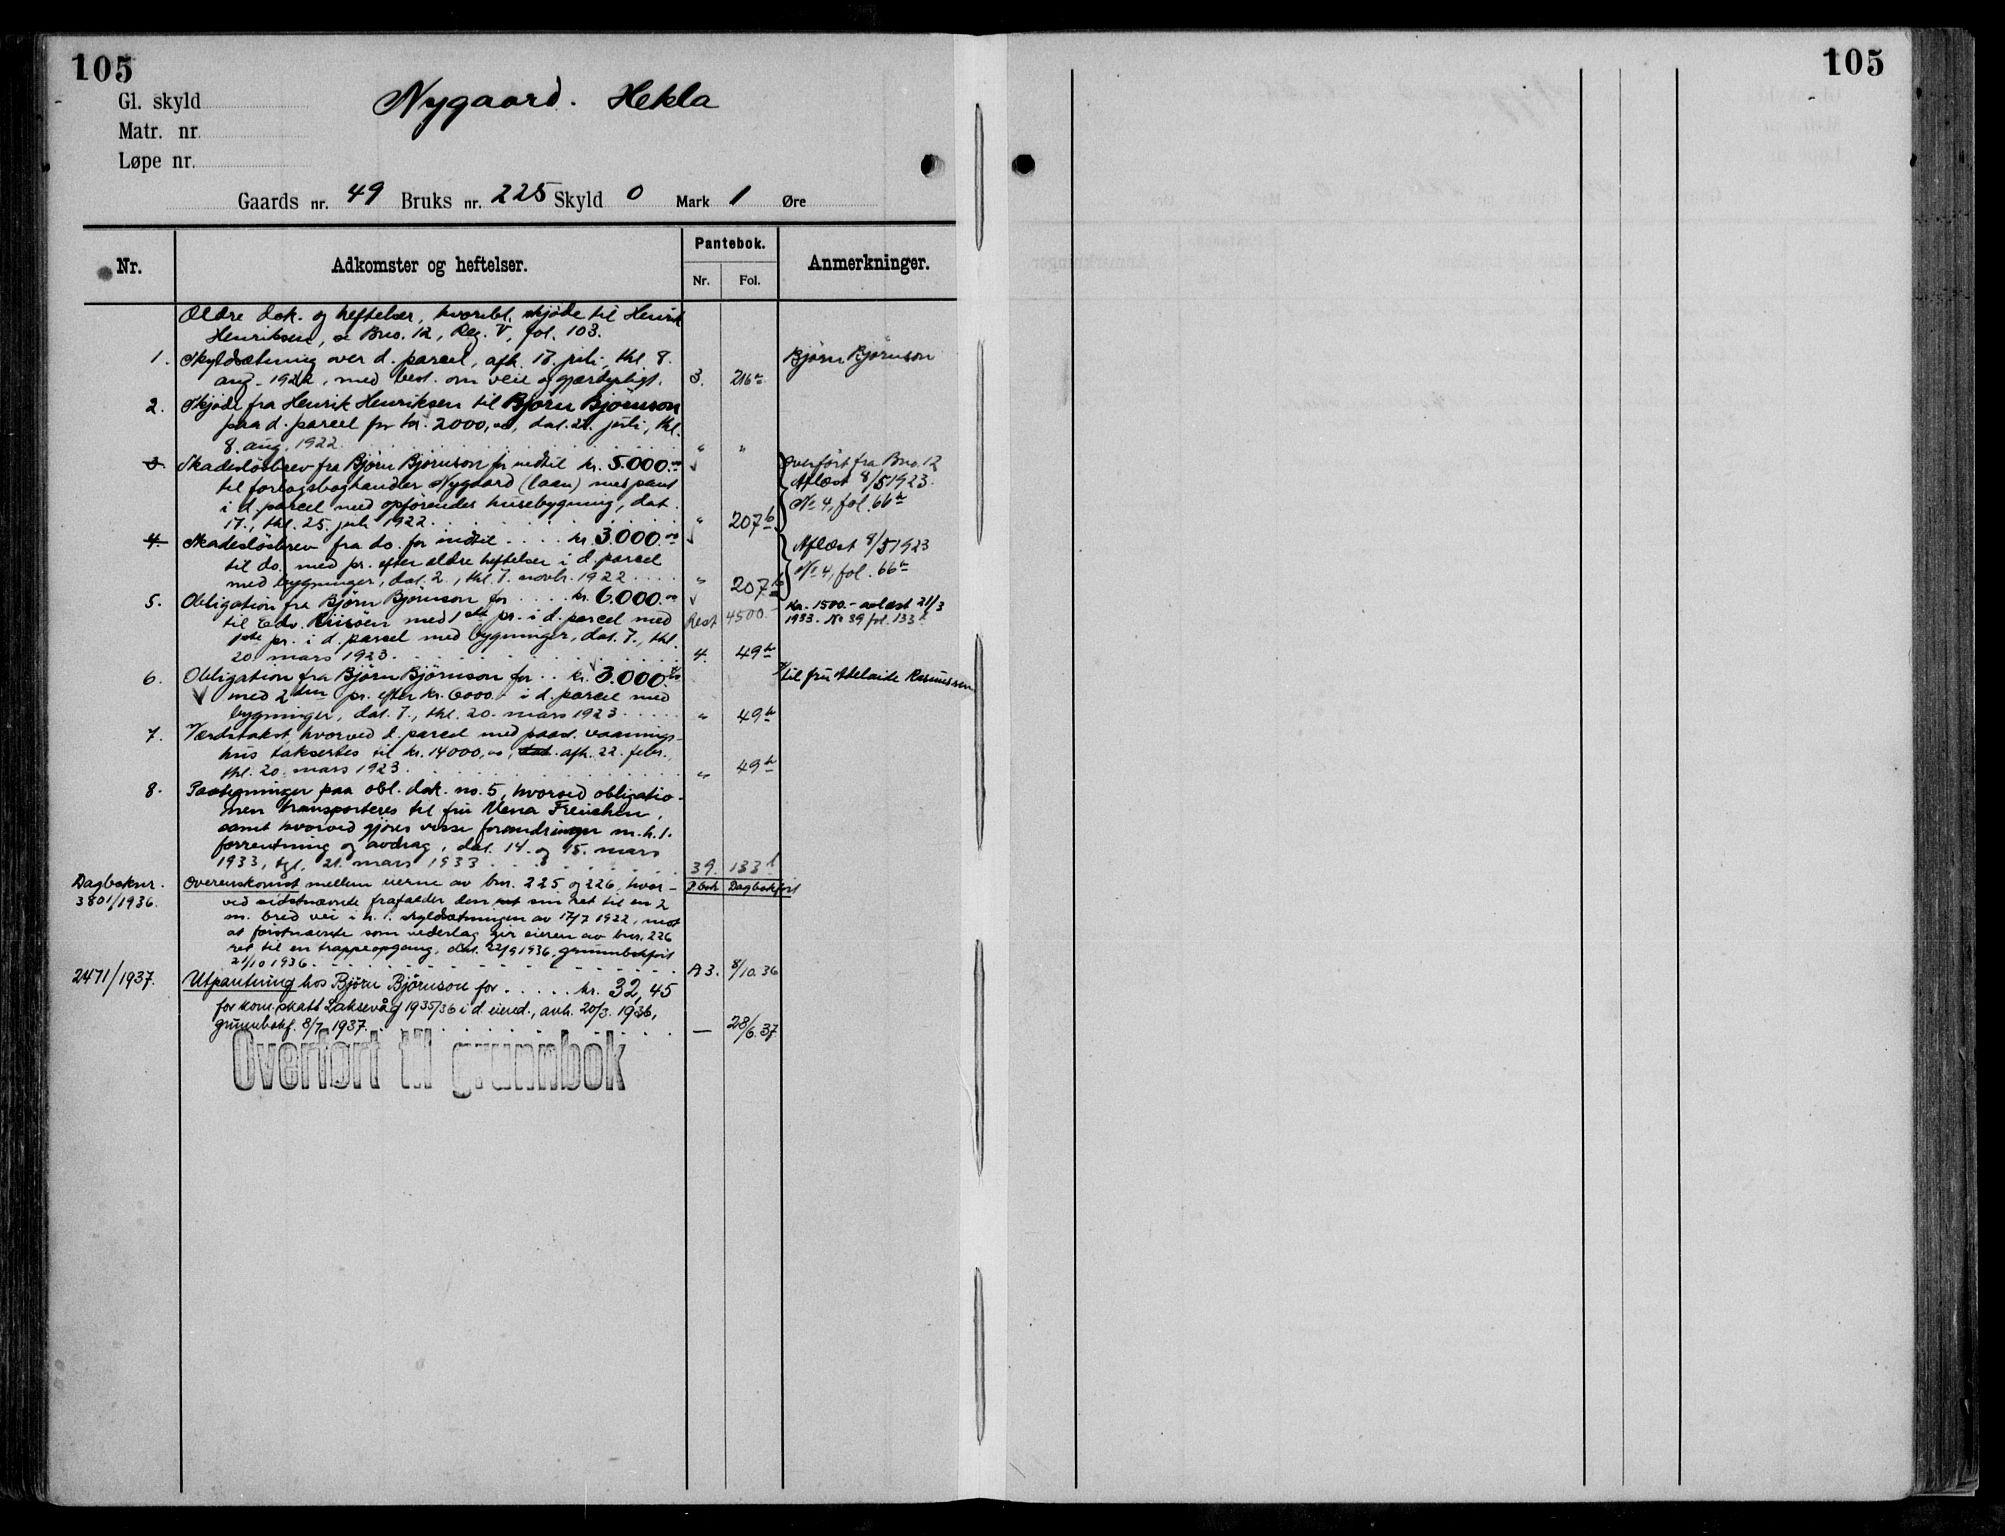 105
Nygaard. Hekla
Gl. skyld
Matr. nr.
Løpe nr.
Gaards nr. 49 Bruks nr. 225 Skyld 0 Mark 1 Øre
Nr. Adkomster og heftelser. Pantebok. Anmerkninger.
Nr. Fol.
Ældre dok. og heftelser, hvoribl. skjøde til Henrik
Henriksen, se Bno. 12, Reg. V, fol. 103.
1. Skyldsætning over d. parcel, afh. 17. juli, thl. 8. Bjørn Bjørnson
aug. 1922, med best. om veie og gjærdepligt. 3. 216
2. Skjøde fra Henrik Henriksen til Bjørn Bjørnson
paa d. parcel for kr. 2000,00, dat. 21. juli, thl.
8. aug. 1922 " "
3. Skadesløsbrev fra Bjørn Bjørnson for indtil kr. 5.000.00 Overført fra Bno. 12
til forlagsboghandler Nygaard (laan) med pant Aflæst 8/5 1923.
i d. parcel med opførendes husebygning, dat. No 4, fol. 66
17., thl. 25. juli 1922 " 207b
4. Skadesløsbrev fra do. for indtil kr. 3.000.00 Aflæst 8/5 1923
til do. med pr. efter ældre heftelser i d. parcel No 4, fol. 66
med bygninger, dat. 2., thl. 7. novbr. 1922 " 207b
5. Obligation fra Bjørn Bjørnson for kr. 6.000.00 kr. 1500.- avlæst 21/3
til Edv. med 1ste pr. i d. parcel med Rest 4500.- 1933. No 39 fol. 133
1ste pr. i d. parcel med bygninger, dat. 7., thl.
20. mars 1923. 4. 49
6. Obligation fra Bjørn Bjørnson for kr. 3.000. til fru Adelaide Rasmussen
med 2den pr. efter kr. 6000.- i d. parcel med
bygninger, dat. 7., thl. 20. mars 1923 " 49
7. Værdstakst, hvorved d. parcel med paast. vaanings-
hus takseres til kr. 14000,00, dat. afh. 22. febr.,
thl. 20. mars 1923. " 49
8. Paategninger paa obl. dok. no. 5, hvorved obligatio-
nen transporteres til fru Freuchen,
samt hvorved gjøres visse forandringer m.h.t.
forrentning og avdrag, dat. 14. og 15. mars
1933, tgl. 21. mars 1933 39. 133
Dagboknr. Overenskomst mellem eierne av bnr. 225 og 226, hvor- P.bok Dagbokført
3801/1936. ved sidstnævnte frafalder den ret til en 2
m. bred vei i h. t. skyldsætningen av 17/7 1922, mot
at førstnævnte som vederlag gir eieren av bnr. 226
ret til en trappeopgang, dat. 22/9 1936, grunnbokført
21/10 1936. A3. 8/10.36
2471/1937. Utpantning hos Bjørn Bjørnson for kr. 32,45
for kom. skatt Laksevåg 1935/36 i d. eiend., avh. 20/3. 1936,
grunnbokf. 8/7 1937. — 28/6.37
Overført til grunnbok
105